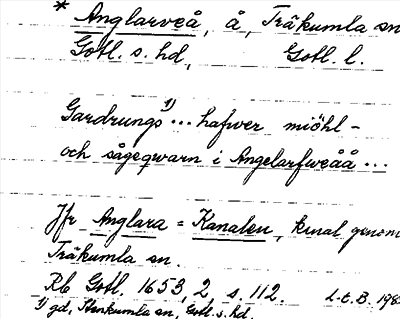 * Anglarveå, å, Träkumla sn
Gotl. s. hd, Gotl. l.
Gardrungs 1) ... hafwer miöhl-
och sågeqwarn i Angelarfweåå ...
Jfr Anglara = Kanalen, kanal genom
Träkumla sn.
Rb Gotl. 1653, 2 s. 112. L.E.B. 198
1) gd, Stenkumla sn, Gotl. s. hd.